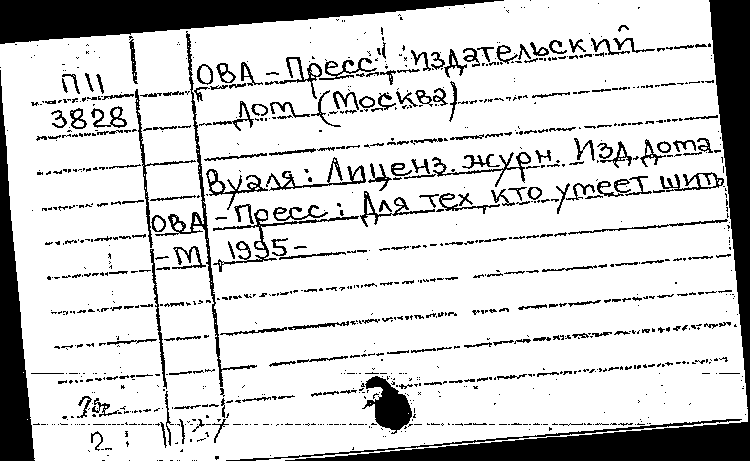 П11
3828
ОВА - Пресс", издательский
" дом (Москва)
Вуаля: Лиценз. журн. Изд. дома
ОВА - Пресс: Для тех, кто умеет шить
- М, 1995 -
2